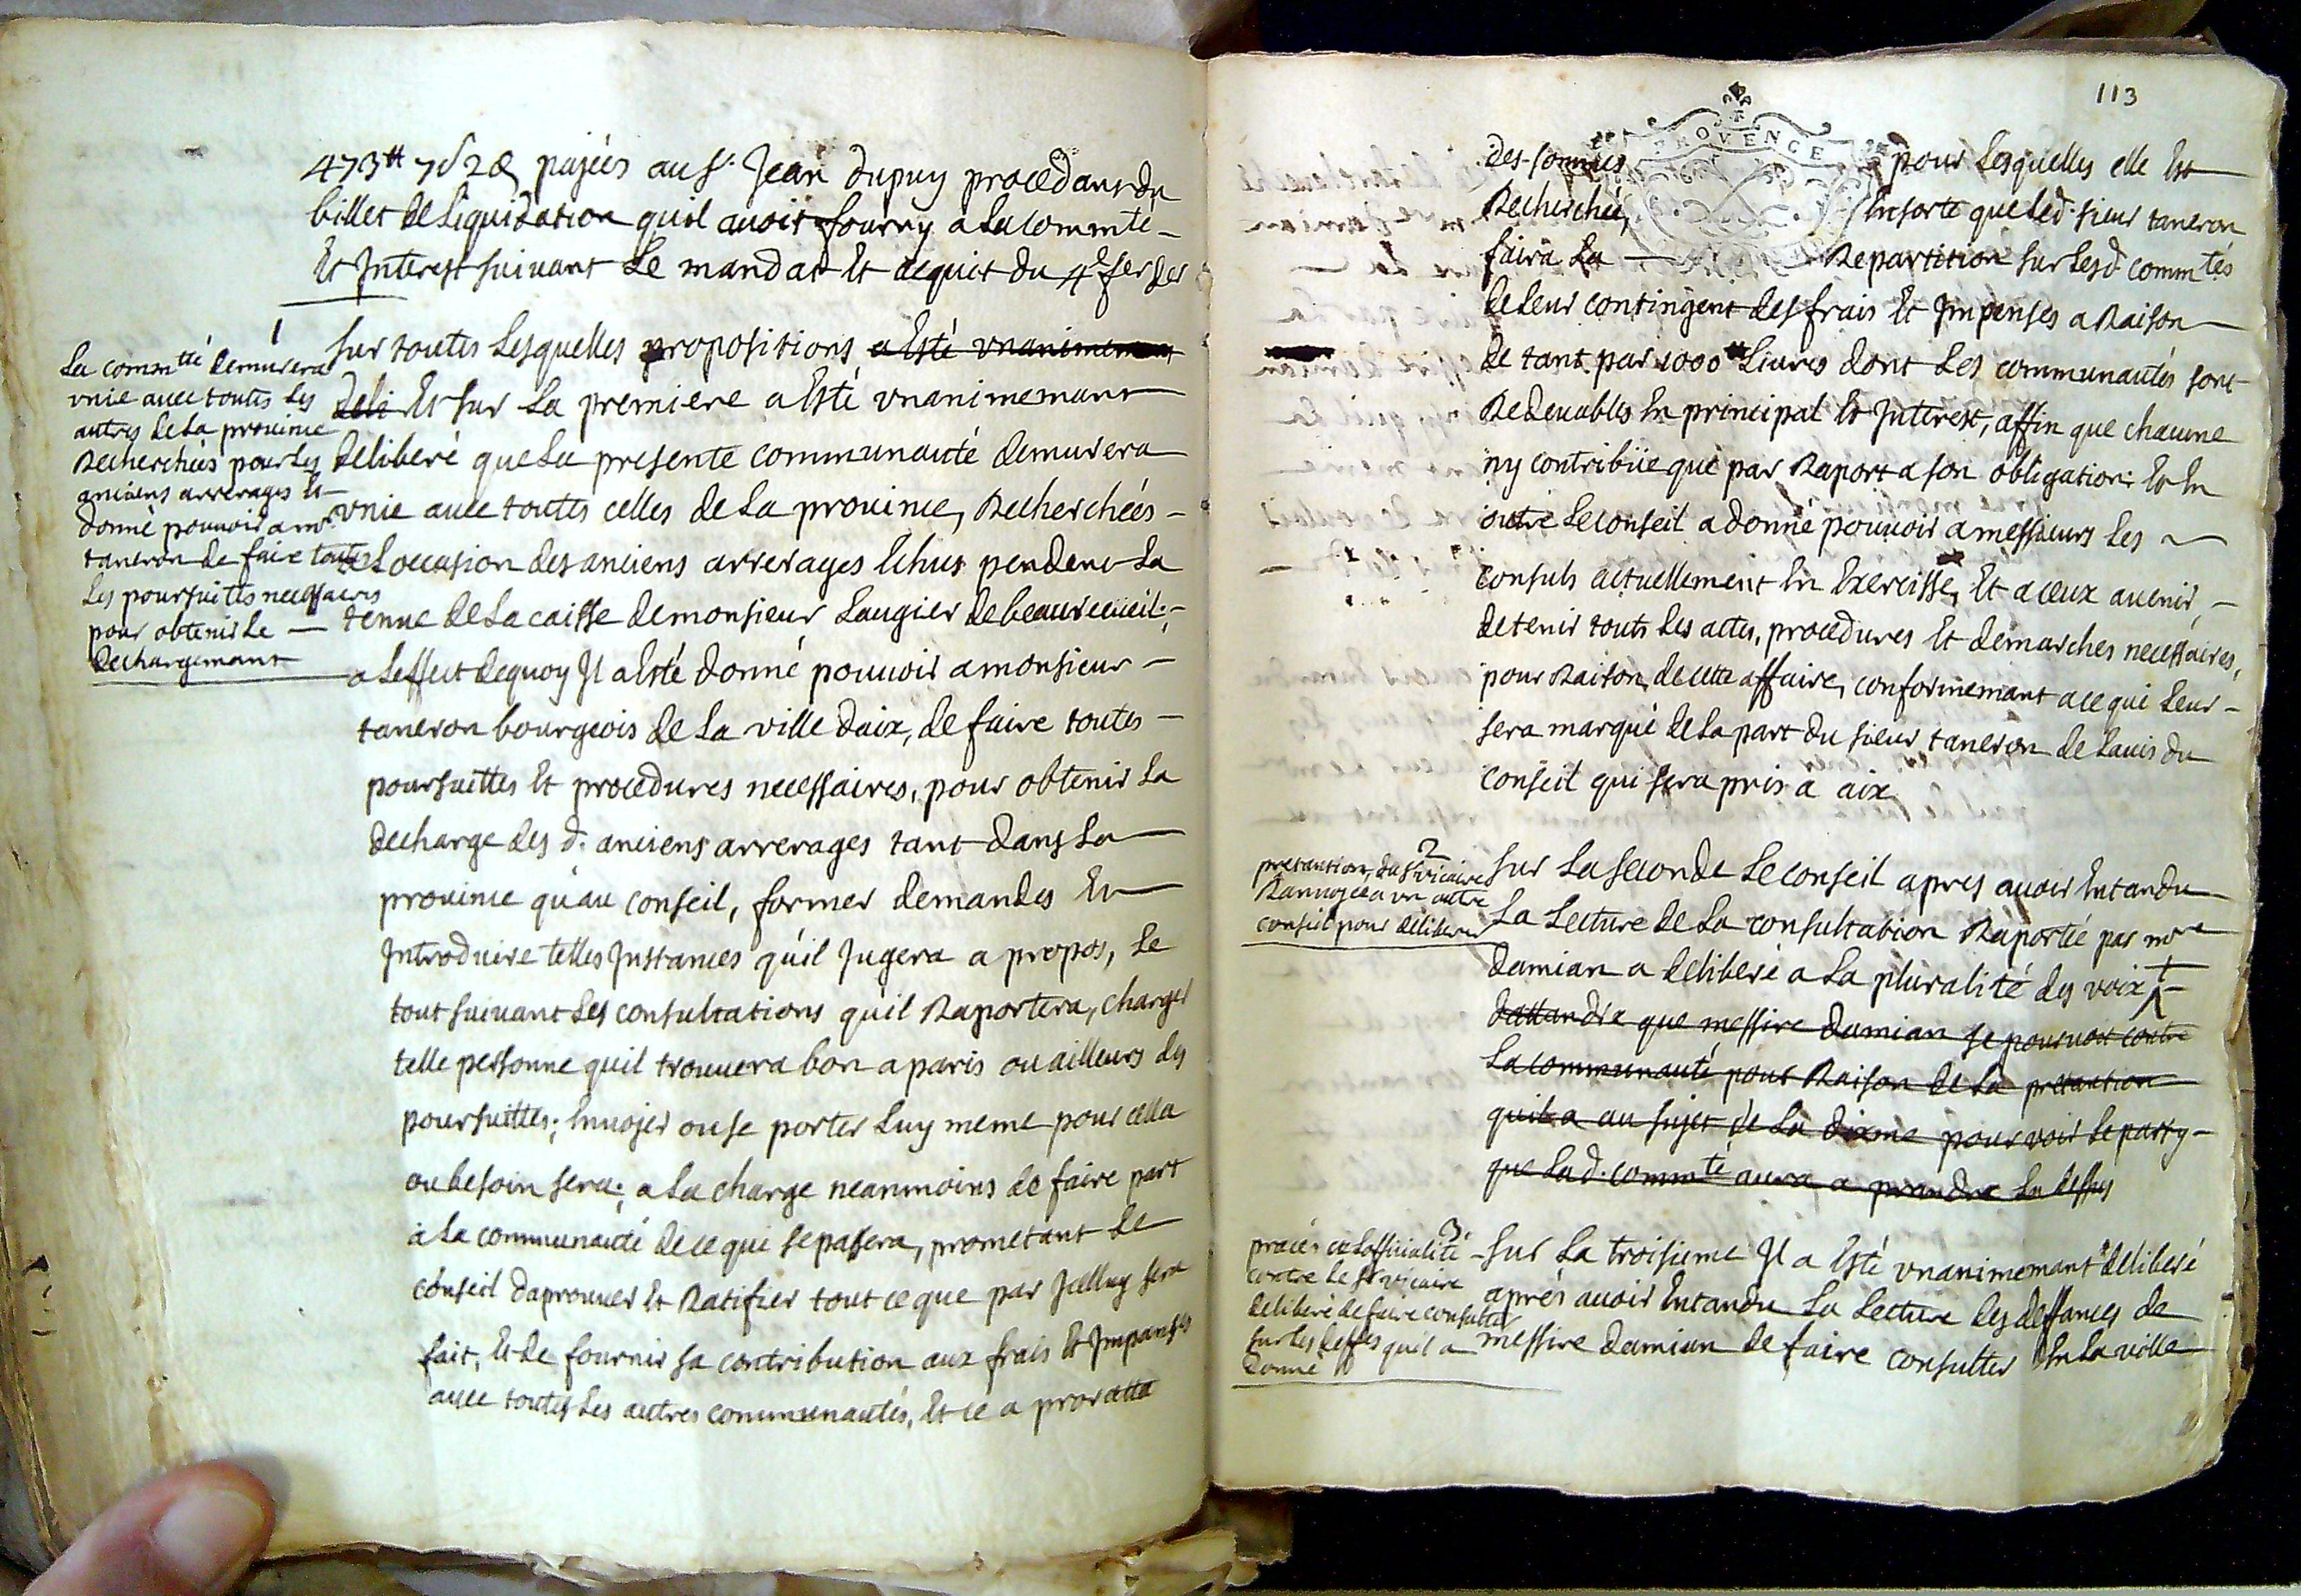 473tt 7s 2d pajées au sr. Jean dupuy procedant du
billet de liquidation quil avoit fourny a la commté
Et Interest suivant le mandat Et aquit du 4e fer der
1
la commtté demurera
vnie avec toutes les
autres de la province
Recherchées pour les
anciens arrerages Et
donné pouvoir a mr
taneron de faire toutes
les poursuites necessaires
pour obtenir le
dechargemant
sur toutes lesquelles propositions a Esté vnanimemant
deli Et sur la premiere a Esté vnanimemant
deliberé que la presente communauté demurera
vnie avec toutes celles de la province, Recherchées
a loccasion des anciens arrerages Echus pendent la
tenue de la caisse de monsieur Laugier de beaurecueil;
a leffect dequoy Il a Esté donné pouvoir a monsieur
taneron bourgeois de la ville daix, de faire toutes
poursuittes Et procedures necessaires, pour obtenir la
decharge des d. anciens arrerages tant dans la
province qu'au conseil, former demandes En
Introduire telles Instances qu'il Jugera a propos, le
tout suivant les consultations qu'il Raportera, charger
telle personne quil trouvera bon a paris ou ailleurs des
poursuittes; Envojer ou se porter luy meme pour cella
ou besoin sera; a la charge neanmoins de faire part
à la communauté de ce qui se passera, prometant le
conseil daprouver Et Ratifier tout ce que par Jcelluy sera
fait, Et de fournir sa contribution aux frais Et Impanses
avec toutes les autres communautés, Et ce a proratta
113
PROVENCE
des sommes pour lesquelles elle Est
Recherchée, Ensorte que led. sieur taneron
faira la Repartition sur lesd. commtés
de leur contingent des frais Et Impenses a Raison
de tant par 1000tt livres dont les communautés sont
Redevables En principal Et Interest, affin que chacune
ny contribüe que par Raport a son obligation: Et En
outre le conseil a donné pouvoir a messieurs les
consuls actuellement En Exercisse, Et a ceux avenir,
de tenir touts les actes, procedures Et demarches necessaires,
pour Raison, de cette affaire, conformemant a ce qui leur
sera marqué de la part du sieur taneron de lavis du
conseil qui sera pris a aix
2
pretantion, du sr vicaire
Ranvojée a un autre
conseil pour deliberer
sur la seconde le conseil apres avoir Entandu
la lecture de la consultation Raportée par mre
damian a deliberé a la pluralité des voix +
dattandre que messire damian se pourvoie contre
la communauté pour Raison de la pretantion
quil a au sujet de la dixme pour voir le party
que lad. commté aura a prandre la dessus
3
procés en lofficialité
contre le sr vicaire
deliberé de faire consulter
sur les deffes quil a
donné
sur la troisieme Il a Esté vnanimemant deliberé
aprés avoir Entandu la lecture des deffances de
messire damian de faire consulter En la ville